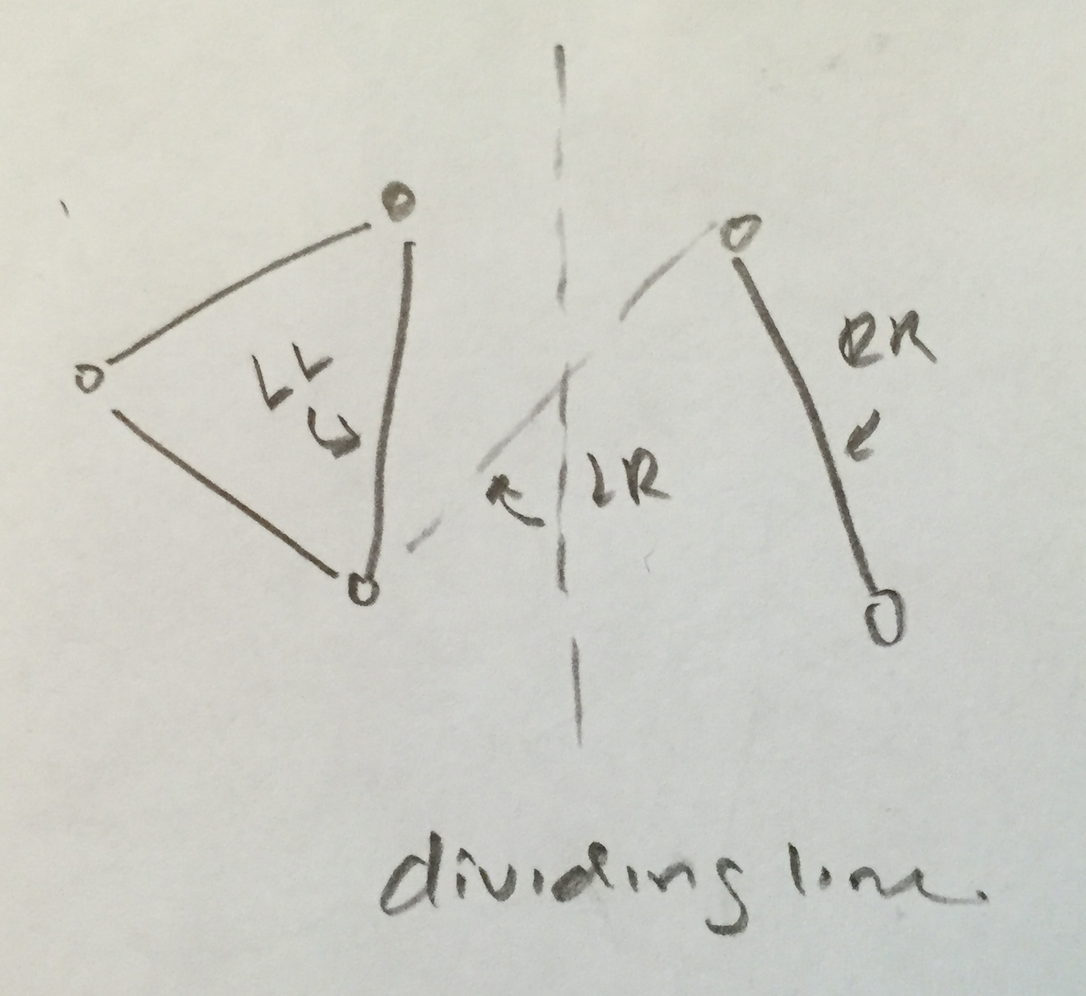 LL
RR
LR
dividing line.